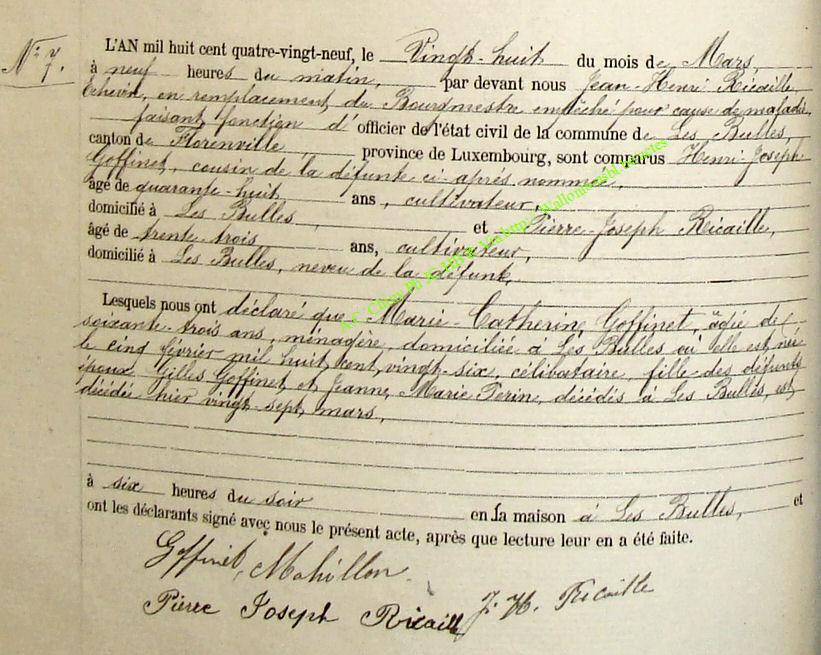 N° 7.
L'AN mil huit cent quatre-vingt-neuf, le Vingt-huit du mois de Mars,
à neuf heures du matin, par devant nous Jean-Henri Ricaille,
Echevin, en remplacement du Bourgmestre empêché pour cause de maladie,
faisant fonction d'officier de l'état civil de la commune de Les Bulles,
canton de Florenville, province de Luxembourg, sont comparus Henri-Joseph
Goffinet, cousin de la défunte ci-après nommée,
âgé de quarante-huit ans, cultivateur,
domicilié à Les Bulles, et Pierre-Joseph Ricaille,
âgé de trente-trois ans, cultivateur,
domicilié à Les Bulles, neveu de la défunte,
Lesquels nous ont déclaré que Marie-Catherine Goffinet, âgée de
soixante-trois ans, ménagère, domiciliée à Les Bulles où elle est née
le cinq février mil huit cent vingt-six, célibataire, fille des défunts
époux Gilles Goffinet et Jeanne Marie Perin, décédés à Les Bulles, est
décédée hier vingt-sept mars,
à six heures du soir en la maison à Les Bulles, et
ont les déclarants signé avec nous le présent acte, après que lecture leur en a été faite.
Goffinet, Mahillon
Pierre Joseph Ricaille J. H. Ricaille